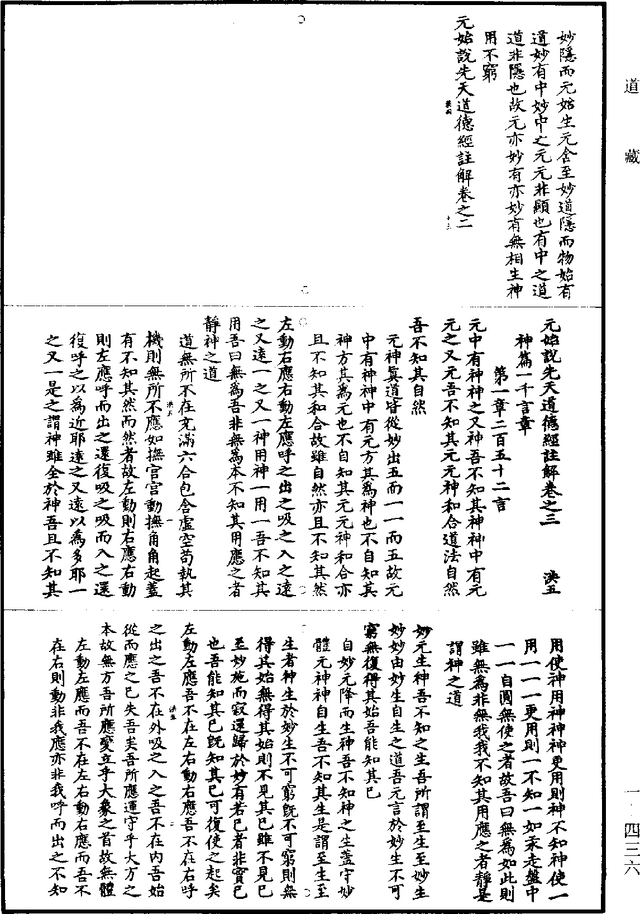 道藏
妙隱而元始生元含至妙道隱而物始有
道妙有中妙中之元元非顯也有中之道
道非隱也故元亦妙有亦妙有無相生神
用不窮
元始說先天道德經註解卷之二
元始說先天道德經註解卷之三
洪五
神篇一千言章
第一章二百五十二言
元中有神神之又神吾不知其神神中有元
元之又元吾不知其元元神和合道法自然
吾不知其自然
元神眞道皆從妙出五而一一而五故元
中有神神中有元方其爲神也不自知其
神方其爲元也不自知其元元神和合亦
且不知其和合故雖自然亦且不知其然
左動右應右動左應呼之出之吸之入之遠
之又遠一之又一神用神一用一吾不知其
用吾曰無爲吾非無爲本不知其用應之者
靜神之道
道無所不在充滿六合包含虛空苟執其
機則無所不應如撫宮宮動撫角角起蓋
有不知其然而然者故左動則右應右動
則左應呼而出之還復吸之吸而入之還
復呼之以爲近耶遠之又遠以爲多耶一
之又一是之謂神雖全於神吾且不知其
用使神用神神神更用則神不知神使一
用一一一更用則一不知一如汞走盤中
一一自圓無使之者故吾曰無爲如此則
雖無爲非無我我不知其用應之者靜是
謂神之道
妙元生神吾不知之生吾所謂至生至妙生
妙妙由妙生自生之道吾元言於妙生不可
窮無復得其始吾能知其已
自妙元降而生神吾不知神之生蓋守妙
體元神神自生吾不知其生是謂至生至
生者种生於妙生不可窮旣不可窮則無
得其始無得其始則不見其已雖不見已
至妙施而寂還歸於妙有若已者非實已
也吾能知其已旣知其已可復使之起矣
左動左應吾不在左右動右應吾不在右呼
之出之吾不在外吸之入之吾不在內吾始
從而應之已失吾矣吾所應運守乎大方之
本故無方吾所應變立乎大象之首故無體
左動左應而吾不在左右動右應而吾不
在右則動非我應亦非我呼而出之不知
一・四三六